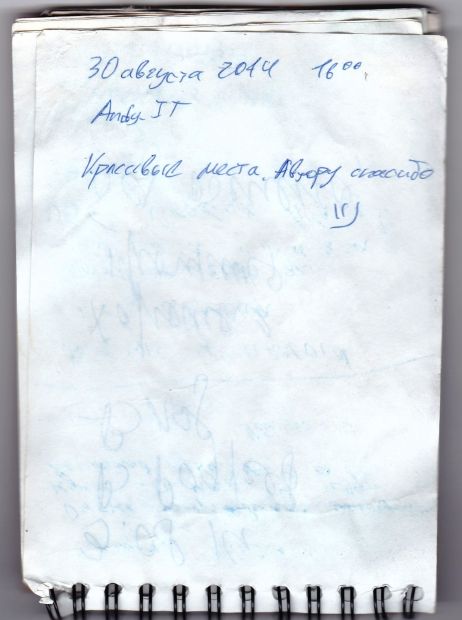 30 августа 2014 16⁰⁰.
Andy-IT
Красивые места. Автору спасибо